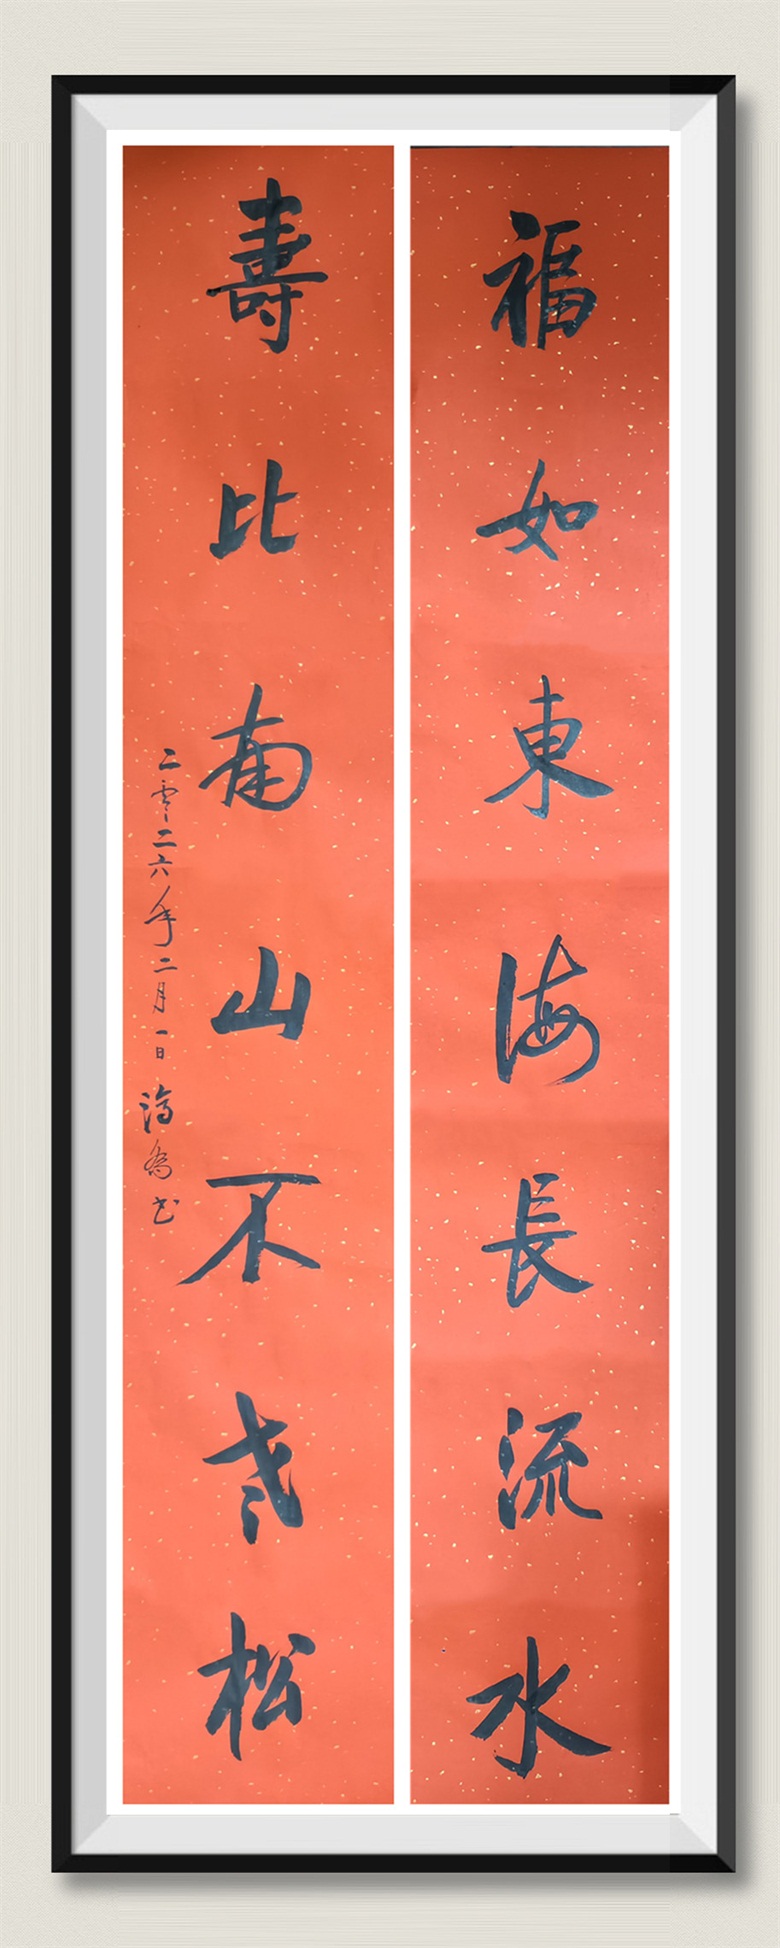 福如東海長流水
壽比南山不老松
二零二六年二月一日 書